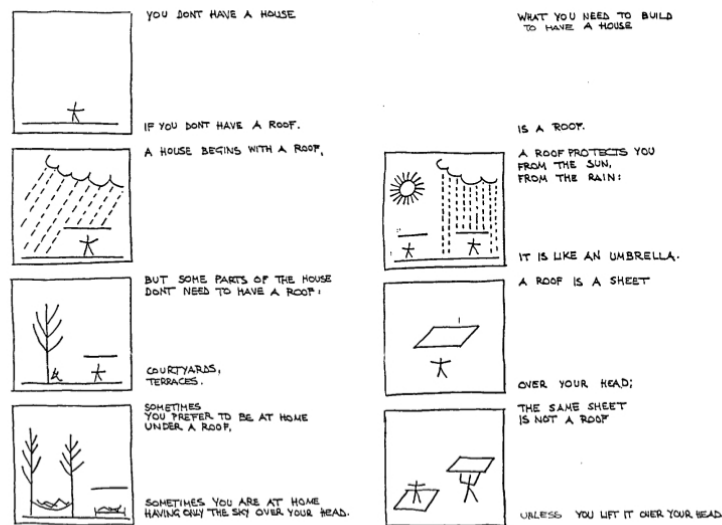 YOU DONT HAVE A HOUSE
IF YOU DONT HAVE A ROOF.
A HOUSE BEGINS WITH A ROOF,
BUT SOME PARTS OF THE HOUSE
DONT NEED TO HAVE A ROOF:
COURTYARDS,
TERRACES.
SOMETIMES
YOU PREFER TO BE AT HOME
UNDER A ROOF,
SOMETIMES YOU ARE AT HOME
HAVING ONLY THE SKY OVER YOUR HEAD.
WHAT YOU NEED TO BUILD
TO HAVE A HOUSE
IS A ROOF.
A ROOF PROTECTS YOU
FROM THE SUN,
FROM THE RAIN:
IT IS LIKE AN UMBRELLA.
A ROOF IS A SHEET
OVER YOUR HEAD;
THE SAME SHEET
IS NOT A ROOF
UNLESS YOU LIFT IT OVER YOUR HEAD